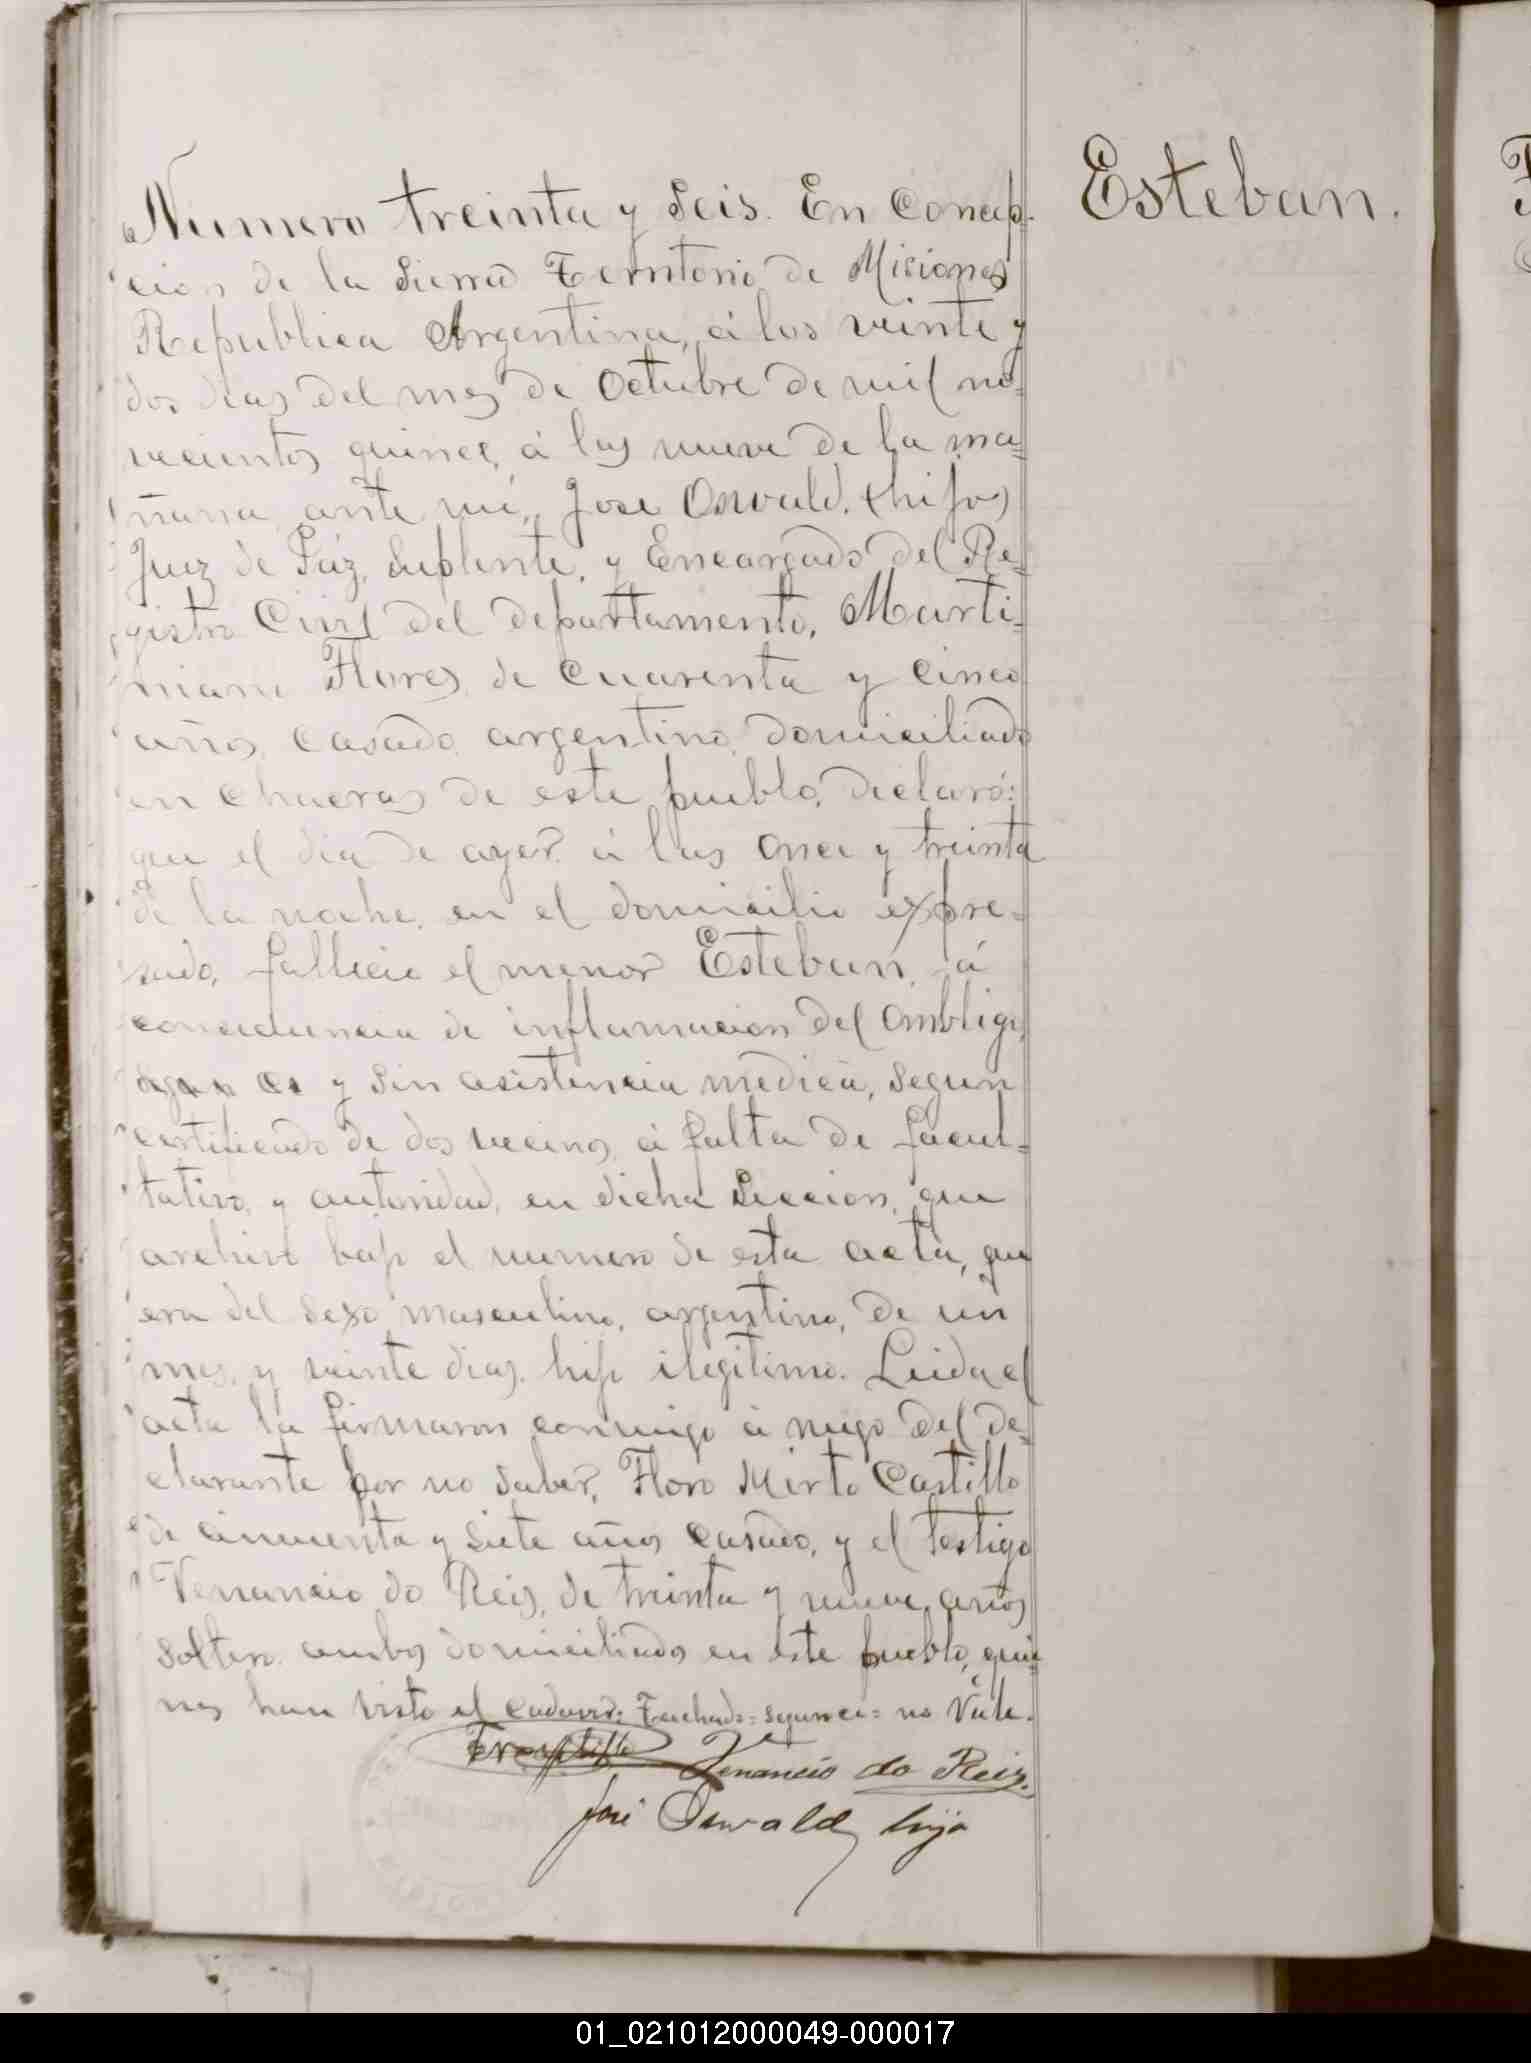 Numero treinta y seis. En Concep-
cion de la Sierra Territorio de Misiones
Republica Argentina, á los veinte y
dos dias del mes de Octubre de mil no=
vecientos quince, á las nueve de la ma=
ñana, ante mi, Jose Oswald. (hijo)
Juez de Páz, Suplente, y Encargado del Re=
gistro Civil del departamento, Marti=
niano Flores, de cuarenta y cinco
años, casado, argentino, domiciliado
en chacras de este pueblo, declaró:
que el dia de ayer á las once y treinta
de la noche, en el domicilio expre=
sado, fallecio el menor Esteban, á
consecuencia de inflamacion del ombligo,
y sin asistencia medica, segun
certificado de dos vecinos, á falta de facul=
tativo, y autoridad, en dicha Seccion, que
archivo bajo el numero de esta acta, que
era del sexo masculino, argentino, de un
mes, y veinte dias, hijo ilegitimo. Leida el
acta la firmaron conmigo á ruego del de=
clarante por no saber, Floro Mirto Castillo
de cincuenta y siete años casado, y el testigo
Venancio do Reis, de treinta y nueve años
soltero, ambos domiciliados en este pueblo, quie
nes han visto el cadaver: Tachado= = no Vale.
Venancio do Reis.
José Oswald hijo
Esteban.
01_021012000049-000017